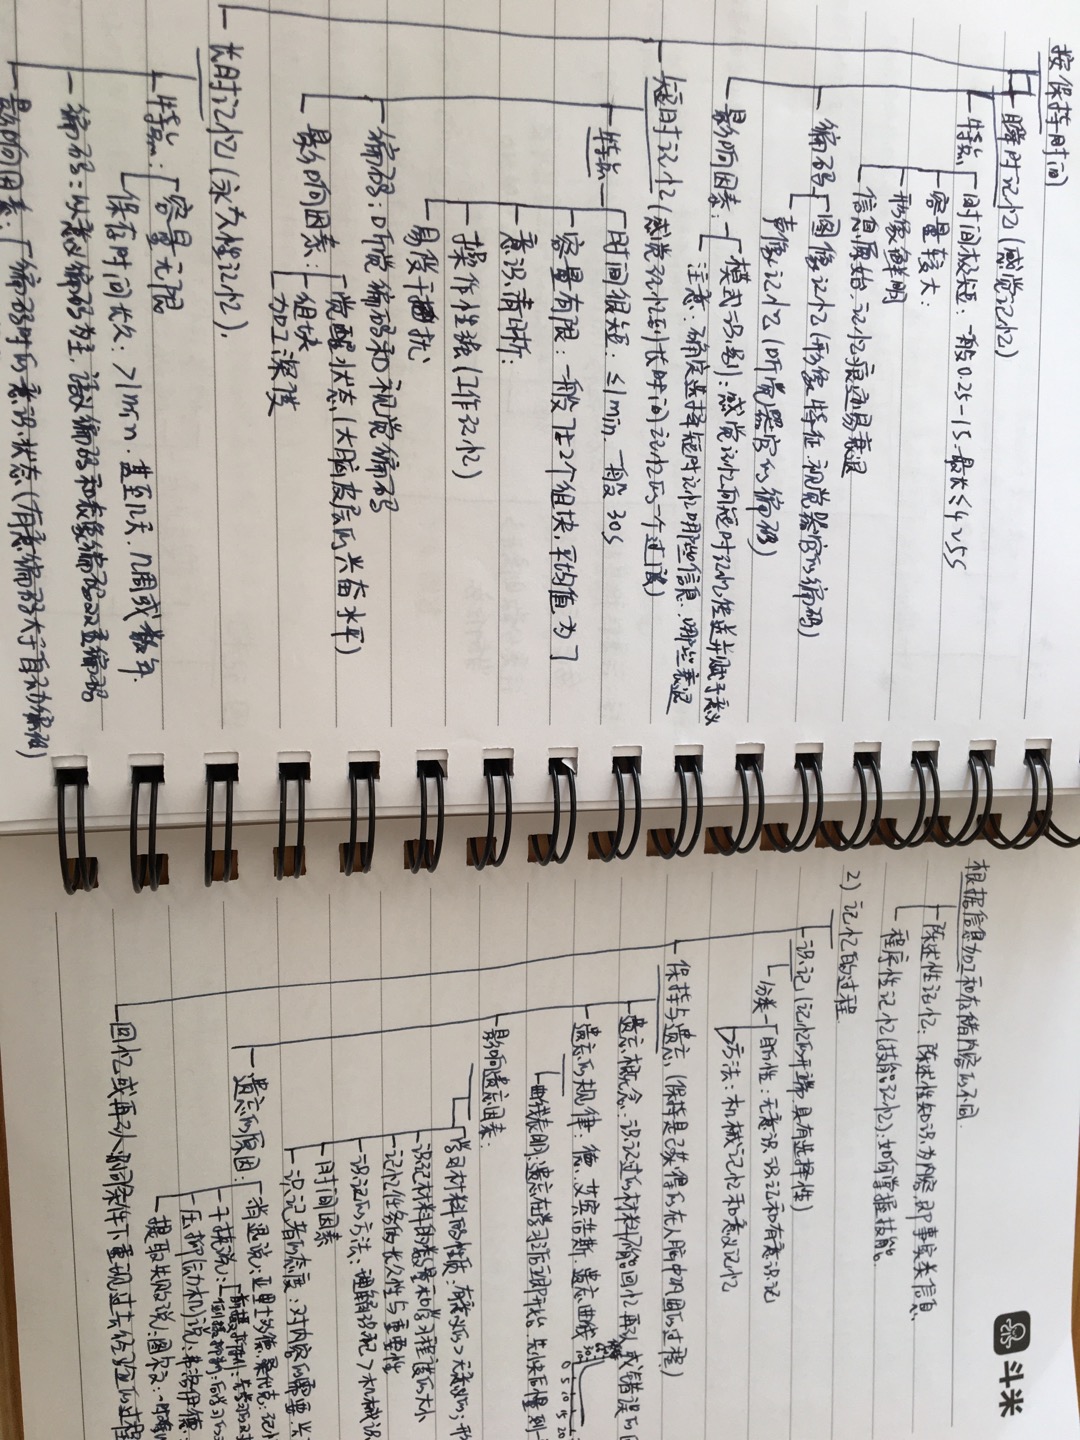 按保持时间
瞬时记忆(感觉记忆)
特点 时间极短:一般0.25-1S.最长≤4~5S
容量较大:
形象鲜明
信息原始,记忆痕迹易衰退
编码 图像记忆(形象特征.视觉器官的编码)
声像记忆(听觉器官的编码)
影响因素: 模式识别:感觉记忆向短时记忆传送并赋予意义
注意:确定选择短时记忆哪些信息.哪些衰退
短时记忆(感觉记忆到长时间记忆的一个过渡)
特点 时间很短:≤1min.一般30S
容量有限:一般7±2个组块,平均值为7
意识清晰:
操作性强(工作记忆)
易受干扰
编码:听觉编码和视觉编码
影响因素: 觉醒状态(大脑皮层的兴奋水平)
组块
加工深度
长时记忆(永久性记忆).
特点: 容量无限
保存时间长久:>1min.甚至几天.几周或数年.
编码:以意义编码为主,语义编码和表象编码双重编码
影响因素: 编码时的意识状态(有意编码大于自动编码)
斗米
根据信息加工和存储内容的不同.
陈述性记忆:陈述性知识为内容.即事实类信息
程序性记忆(技能记忆):如何掌握技能.
2)记忆的过程
识记(记忆的开端具有选择性)
分类 目的性:无意识识记和有意识记
方法:机械记忆和意义记忆
保持与遗忘.(保持是已获得的在人脑中巩固的过程)
遗忘概念:识记过的材料不能回忆再认或错误的回
遗忘的规律:德.艾宾浩斯.遗忘曲线
曲线表明:遗忘在学习之后立即开始,先快后慢到一
影响遗忘因素:
学习材料的性质:有意义的>无意义的;形
识记材料的数量和学习程度的大小
记忆任务的长久性与重要性
识记的方法:理解识记>机械识
时间因素
识记者的态度:对内容的需要.兴
遗忘的原因: 消退说:亚里士多德.桑代克:记忆
干扰说: 前摄抑制:先学习的对
倒摄抑制:后学习的
压抑(动机)说:弗洛伊德.
提取失败说:图尔文:
回忆或再认:不同条件下重现过去经验的过程